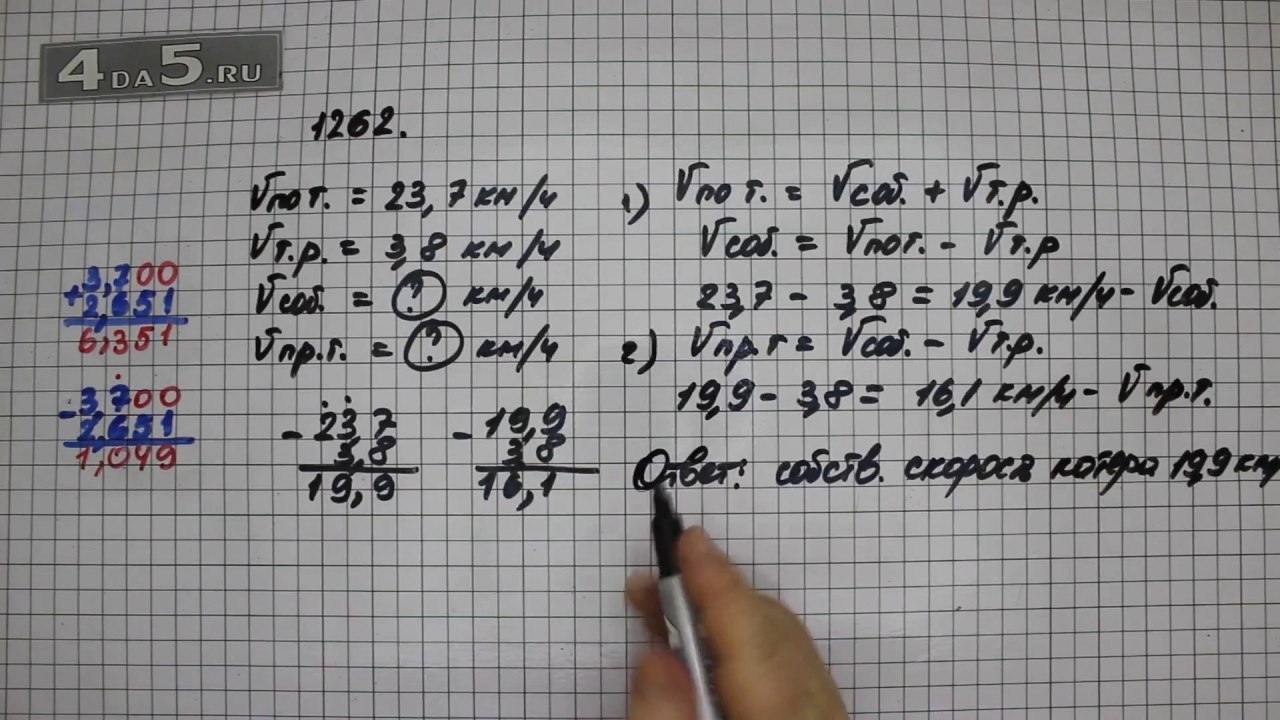 4DA5.RU
1262.
Vпо т. = 23,7 км/ч
Vт.р. = 3,8 км/ч
Vсоб. = ? км/ч
Vпр.т. = ? км/ч
+3,700
2,651
6,351
-3,700
2,651
1,049
-23,7
3,8
19,9
-19,9
3 8
16,1
1) Vпо т. = Vсоб. + Vт.р.
Vсоб. = Vпот. - Vт.р
23,7 - 3,8 = 19,9 км/ч - Vсоб.
2) Vпр.т = Vсоб. - Vт.р.
19,9 - 3,8 = 16,1 км/ч - Vпр.т.
Ответ: собств. скорость катера 19,9 км